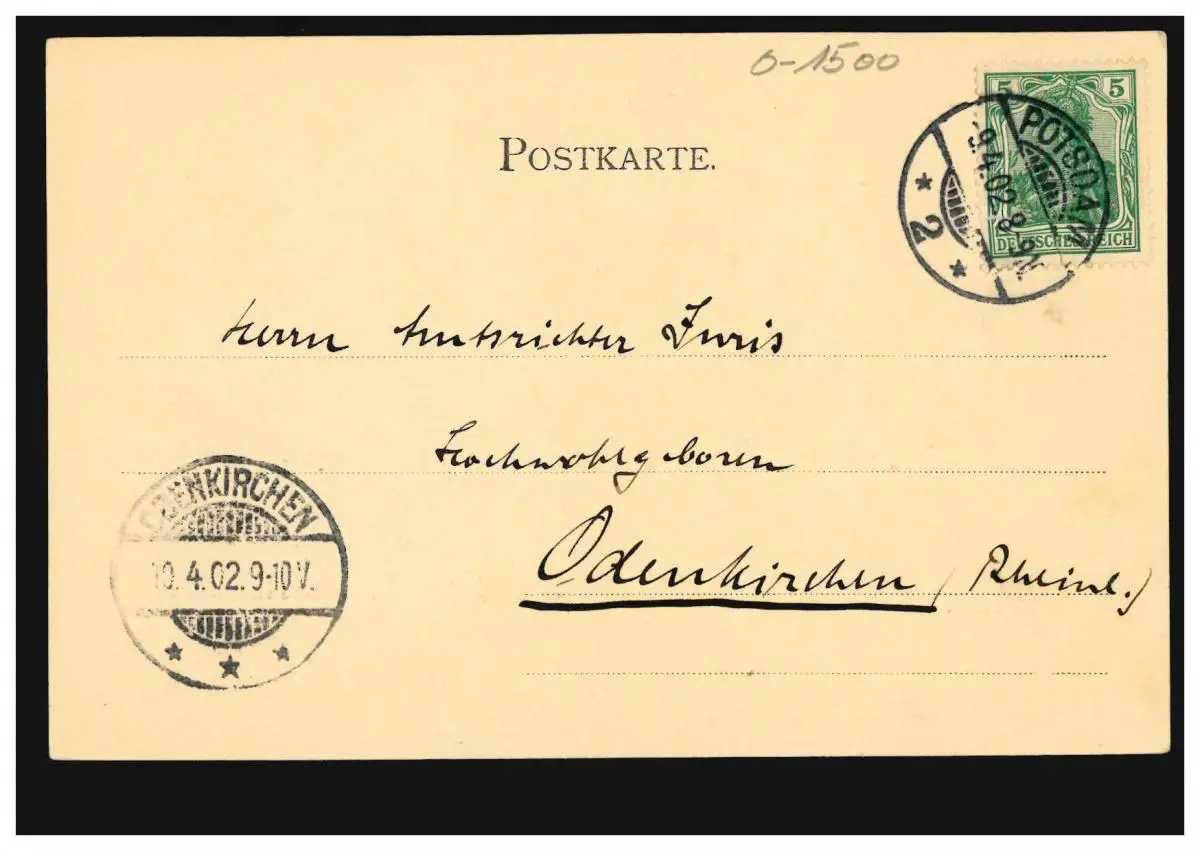 0-1500
5 5
DEUTSCHES REICH
POTSDAM
9.4.02.8-9N.
* 2 *
POSTKARTE.
Herrn Amtsrichter Juris
Hochwohlgeboren
Odenkirchen (Rheinl.)
ODENKIRCHEN
10.4.02.9-10V.
* * *